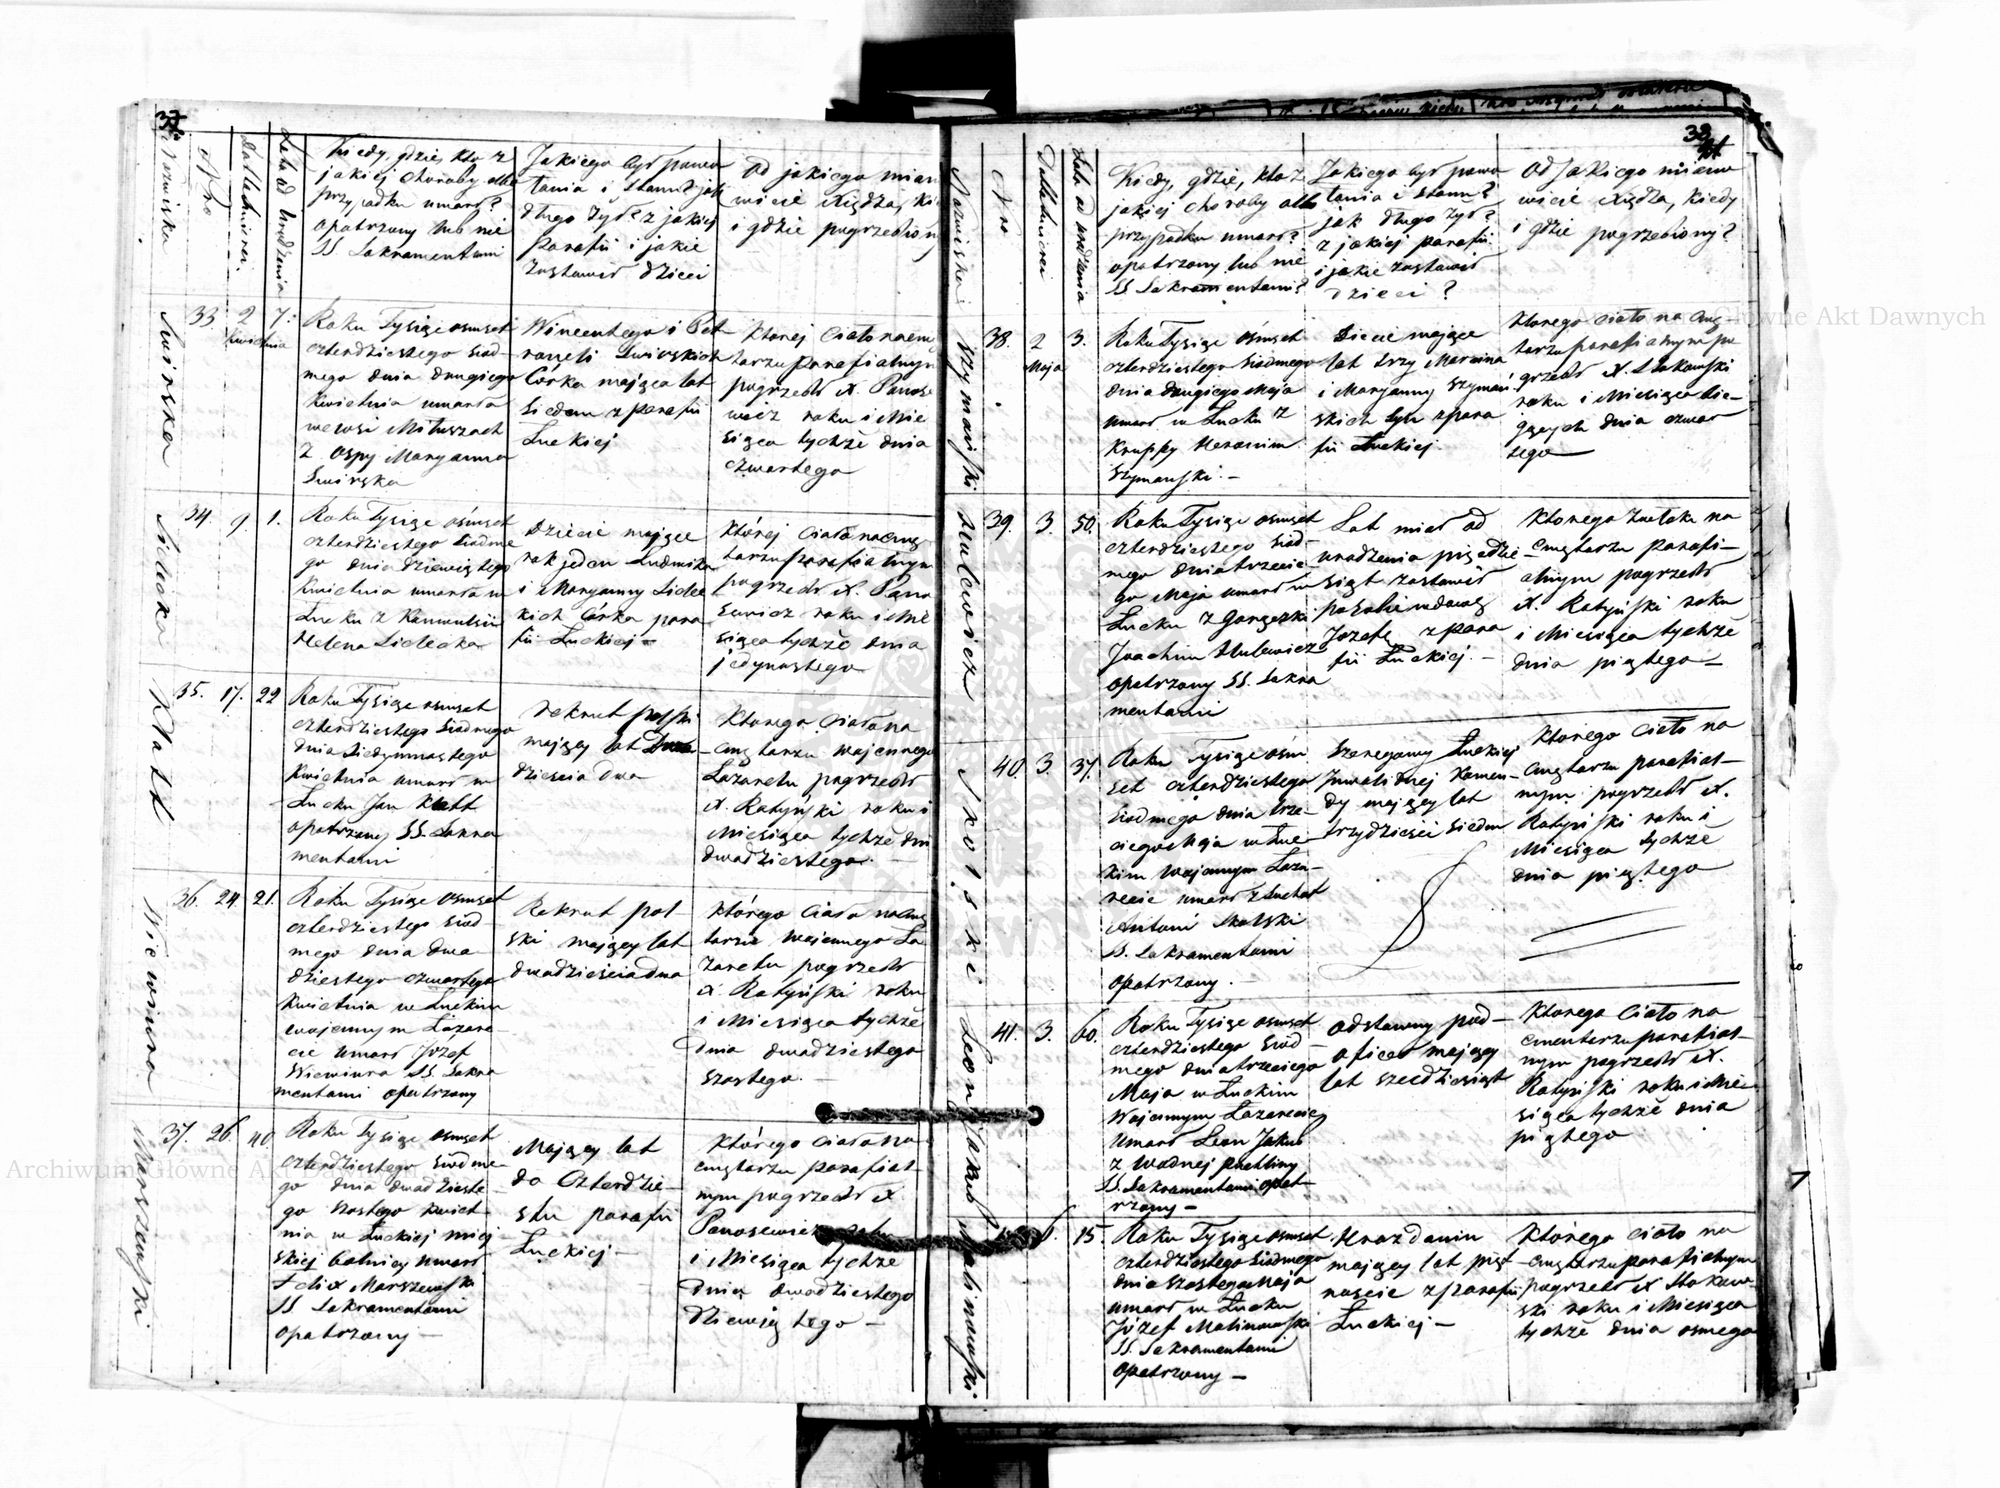 37
Nazwisko
Nro
Data śmierci
Lata od Urodzenia
Kiedy, gdzie, kto z
jakiej choroby albo
przypadku umarł?
opatrzony lub nie
SS. Sakramentami
Jakiego był powo
łania i stanu? jak
długo żył? z jakiej
Parafii i jakie
zostawił dzieci
Od jakiego miano
wicie Xiędza, kie
i gdzie pogrzebiony
Swirska
33.
2 Kwietnia
7.
Roku Tysiąc osmset
czterdziestego siód-
mego dnia drugiego
Kwietnia umarła
we wsi Mituszach
z ospy Maryanna
Swirska
Wincentego i Pet
roneli Swirskich
Córka mająca lat
siedem z parafii
Łuckiej
Ktorej Ciało na cmę
tarzu Parafialnym
pogrzebł X. Panose
wicz roku i Mie
siąca tychże dnia
czwartego
Sidecka
34.
9.
1.
Roku Tysiąc ośmset
czterdziestego siódme
go dnia dziewiątego
Kwietnia umarła w
Łucku z Konwulsii
Helena Sidecka
Dziecie mające
rok jeden Ludwika
i Maryanny Sidec
kich Córka para
fii Łuckiej -
Której Ciało na cmę
tarzu parafialnym
pogrzebł X. Pano
sewicz roku i Mie
siąca tychże dnia
jedynastego
Klatt
35.
17.
22
Roku Tysiąc osmset
czterdziestego siódmego
dnia siedymnastego
Kwietnia umarł w
Łucku Jan Klatt
opatrzony SS. Sakra
mentami
rekrut polski
mający lat dwa-
dzieścia dwa
Ktorego Ciało na
cmętarzu wojennego
Łazaretu pogrzebł
X. Ratyński roku i
Miesiąca tychże dni
dwudziestego. -
Wiewiura
36.
24.
21.
Roku Tysiąc osmset
czterdziestego siód
mego dnia dwu
dziestego czwartego
Kwietnia w Łuckim
wojennym Łazare
cie umarł Józef
Wiewiura SS. Sakra
mentami opatrzony
Rekrut pol-
ski mający lat
dwadzieścia dwa
Którego Ciało na cmę
tarzu wojennego Ła
zaretu pogrzebł
X. Ratyński roku
i Miesiąca tychże
dnia dwudziestego
szóstego. -
Marszewski
37.
26.
40
Roku Tysiąc osmset
czterdziestego siódme
go dnia dwudzieste-
go szostego Kwiet-
nia w Łuckiej miej
skiej bolnicy umarł
Felix Marszewski
SS Sakramentami
opatrzony -
Mający lat
do Czterdzie-
stu parafii
Łuckiej -
Którego Ciało na
cmętarzu parafial-
nym pogrzebł X
Panosewicz roku
i Miesiąca tychże
dnia dwudziestego
Dziewiątego -
38
Nazwisko
Nro
Data śmierci
Lata od urodzenia
Kiedy, gdzie, kto z
jakiej choroby albo
przypadku umarł?
opatrzony lub nie
SS. Sakramentami?
Jakiego był powo
łania i stanu?
jak długo żył?
z jakiej parafii
i jakie zostawił
dzieci?
Od jakiego miano
wicie Xiędza, kiedy
i gdzie pogrzebiony?
Szymański
38.
2 Maja
3.
Roku Tysiąc ośmset
czterdziestego Siódmego
dnia drugiego Maja
umarł w Łucku z
Kruppy Heronim
Szymański. -
Dziecie mające
lat trzy Marcina
i Maryanny Szymań
skich syn z para
fii Łuckiej.
Ktorego Ciało na cmę-
tarzu parafialnym po
grzebł X. Stokowski
roku i Miesiąca bie-
żących dnia czwar
tego -
Hulewicz
39.
3.
50.
Roku Tysiąc osmset
czterdziestego siód-
mego dnia trzecie
go Maja umarł w
Łucku z Gorączki
Joachim Hulewicz
opatrzony SS. Sakra
mentami
Lat miał od
urodzenia pięćdzie-
siąt zostawił
po sobie wdowę
Jozefę z para
fii Łuckiej. -
Ktorego Zwłoki na
Cmętarzu Parafi-
alnym pogrzebł
X. Ratyński roku
i Miesiąca tychże
dnia piątego -
Skolski
40.
3.
37.
Roku Tysiąc ośm
set czterdziestego
siodmego dnia trze-
ciego Maja w Łuc-
kim Wojennym Łaza-
recie umarł z Suchot
Antoni Skolski
SS. Sakramentami
opatrzony. -
Szeregowy Łuckiej
Inwalidnej Komen-
dy mający lat
trzydzieści siedm
Ktorego Ciało na
cmętarzu parafial-
nym pogrzebł X.
Ratyński roku i
Miesiąca tychże
dnia piątego
Leon Jakub
41.
3.
60.
Roku Tysiąc osmset
czterdziestego siód-
mego dnia trzeciego
Maja w Łuckim
Wojennym Łazarecie
umarł Leon Jakub
z Wodnej puchliny
SS. Sakramentami opat-
rzony -
Odstawny pod-
oficer mający
lat sześćdziesiąt
Ktorego Ciało na
cmentarzu parafial-
nym pogrzebł X.
Ratyński roku i Mie-
siąca tychże dnia
piątego
Malinowski
6.
15.
Roku Tysiąc osmset
czterdziestego siódmego
dnia szostego Maja
umarł w Łucku
Józef Malinowski
SS. Sakramentami
opatrzony -
mający lat pięt-
naście z parafii
Łuckiej -
Którego ciało na
cmętarzu parafialnym
pogrzebł X Stokow-
ski roku i Miesiąca
tychże dnia osmego
Archiwum Główne Akt Dawnych
Archiwum Główne Akt Dawnych